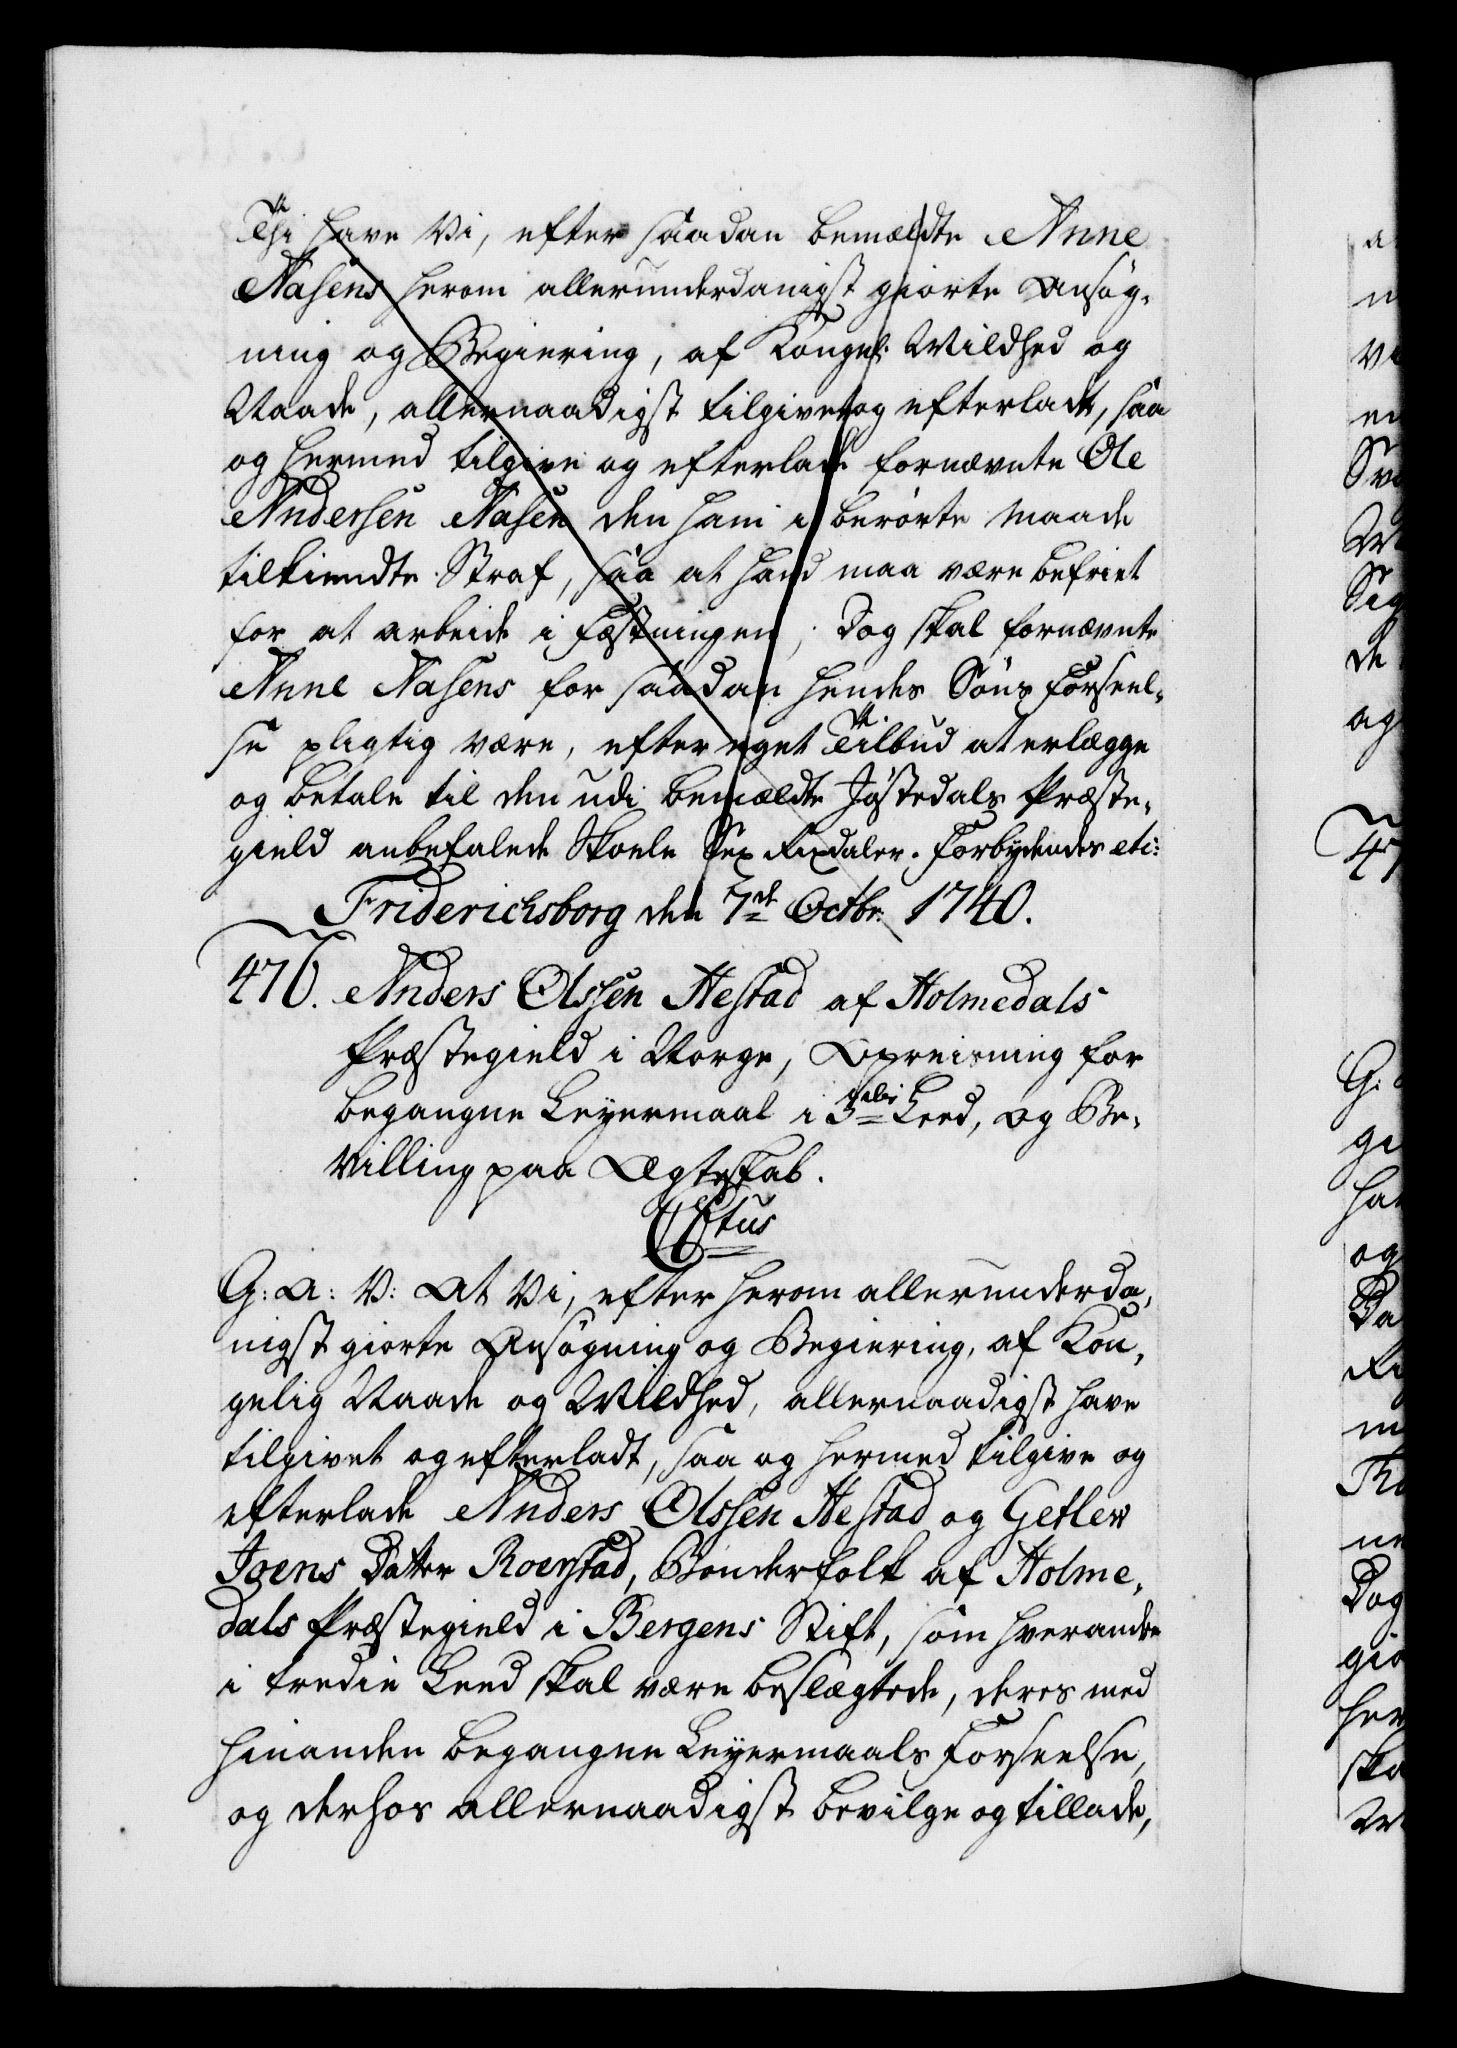 Thi have Vi, efter saadan bemældte Anne
Nasens herom allerunderdanigst giorte Ansøg-
ning og Begiering, af Kongel: Mildhed og
Naade, allernaadigst tilgivet og efterladt, saa
og hermed tilgive og efterlade fornævnte Ole
Andersen Nasen den ham i berørte Maade
tilkiendte Straf, saa at hand maa være befriet
for at arbeide i Fæstningen; Dog skal fornævnte
Anne Nasens for saadan hendes Søns Forseel-
se pligtig være, efter eget Tilbud at erlægge
og betale til den udi bemældte Jøstedals Præste-
gield anbefalede Skoele Sex Rixdaler. Forbydendes etc:
Friderichsborg den 7de Octbr: 1740.
476. Anders Olssen Hestad af Holmedals
Præstegield i Norge, Opreisning for
begangne Leyermaal i 3die Leed, og Be-
villing paa Ægteskab.
C 6tus
G: A: V: At Vi, efter herom allerunderda-
nigst giorte Ansøgning og Begiering, af Kon-
gelig Naade og Mildhed, allernaadigst have
tilgivet og efterladt, saa og hermed tilgive og
efterlade Anders Olssen Hestad og Getler
Joens Datter Roerstad, Bønderfolk af Holme-
dals Præstegield i Bergens Stift, som hverandre
i tredie Leed skal være beslægtede, deres med
hinanden begangne Leyermaals Forseelse,
og derhos allernaadigst bevilge og tillade,